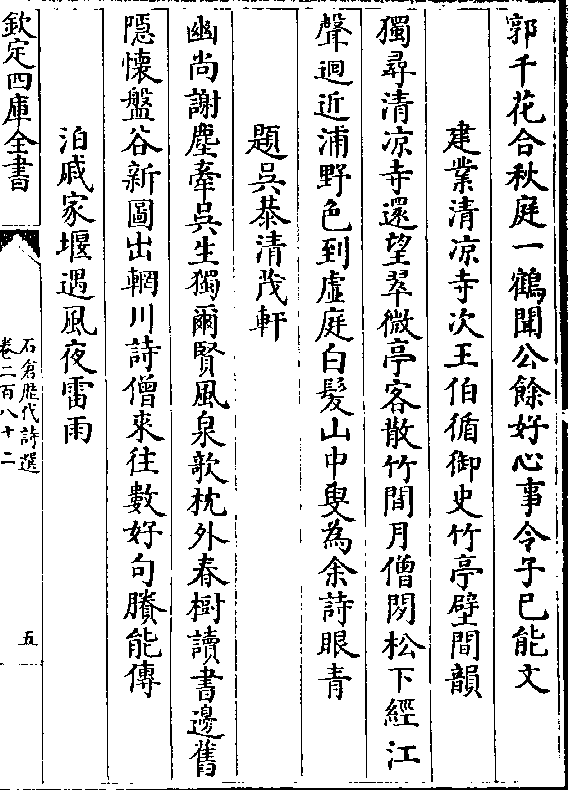 郭千花合秋庭一鶴聞公餘好心事令子已能文
建業清凉寺次王伯循御史竹亭壁間韻
獨尋清凉寺還望翠微亭客散竹間月僧閲松下經江
聲迴近浦野色到虛庭白髮山中叟為余詩眼青
題吳恭清茂軒
幽尚謝塵牽吳生獨爾賢風泉歌枕外春樹讀書邊舊
隠懷盤谷新圖出輞川詩僧來往數好句賸能傳
泊戚家堰遇風夜雷雨
欽定四庫全書
石倉歴代詩選
卷二百八十二
五